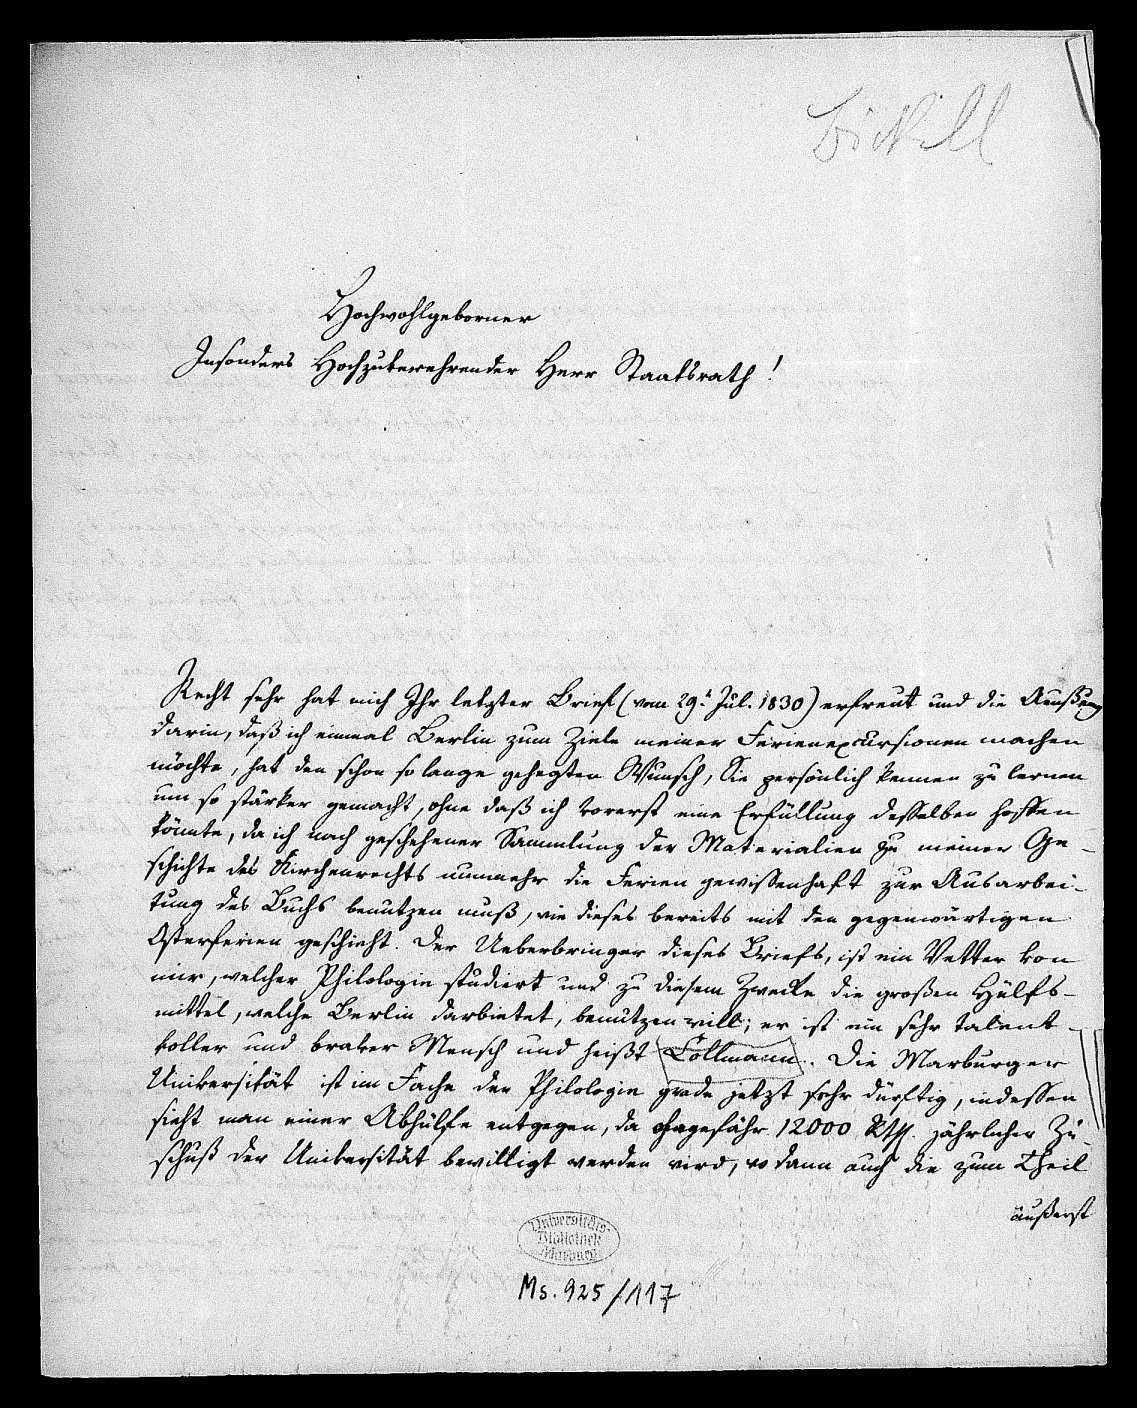 Bickell
Hochwohlgeborner
Insonders Hochzuverehrender Herr Staatsrath!
Recht sehr hat mich Ihr letzter Brief (vom 29t Jul. 1830) erfreut und die Aeußrung
darin, daß ich einmal Berlin zum Ziele meiner Ferienexcursionen machen
möchte, hat den schon so lange gehegten Wunsch, Sie persönlich kennen zu lernen
um so stärker gemacht, ohne daß ich vorerst eine Erfüllung desselben hoffen
könnte, da ich nach geschehener Sammlung der Materialien zu meiner Ge-
schichte des Kirchenrechts nunmehr die Ferien gewissenhaft zur Ausarbei-
tung des Buchs benutzen muß, wie dieses bereits mit den gegenwärtigen
Osterferien geschieht. Der Ueberbringer dieses Briefs, ist ein Vetter von
mir, welcher Philologie studiert und zu diesem Zwecke die großen Hülfs-
mittel, welche Berlin darbietet, benutzen will; er ist ein sehr talent-
voller und braver Mensch und heißt Collmann. Die Marburger
Universität ist im Fache der Philologie grade jetzt sehr dürftig, indessen
sieht man einer Abhülfe entgegen, da ohngefähr 12000 Rthl. jährlicher Zu-
schuß der Universität bewilligt werden wird, wo dann auch die zum Theil
äußerst
Universitäts-
Bibliothek
Marburg
Ms. 925/117